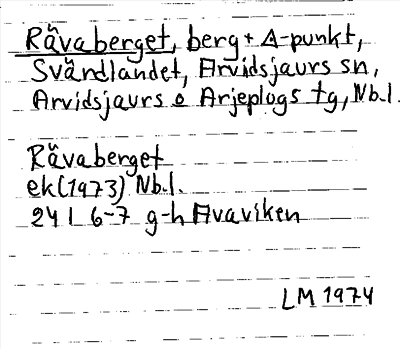 Råvaberget, berg + Δ-punkt,
Svärdlandet, Arvidsjaurs sn,
Arvidsjaurs o Arjeplogs tg, Nb.l.
Råvaberget
ek(1973) Nb.l.
24 I 6-7 g-h Avaviken
LM 1974